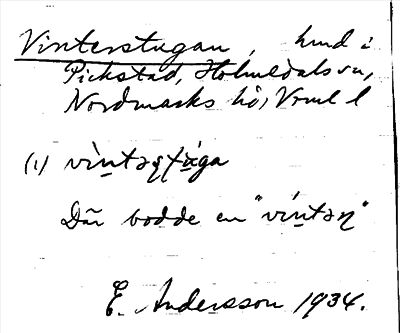 Vinterstugan, hmd i
Pickstad, Holmedals sn,
Nordmarks hd, Vrml l
(1) vìntəʂtʉ̀ga
Där bodde en "víntəɳ"
E. Andersson 1934.